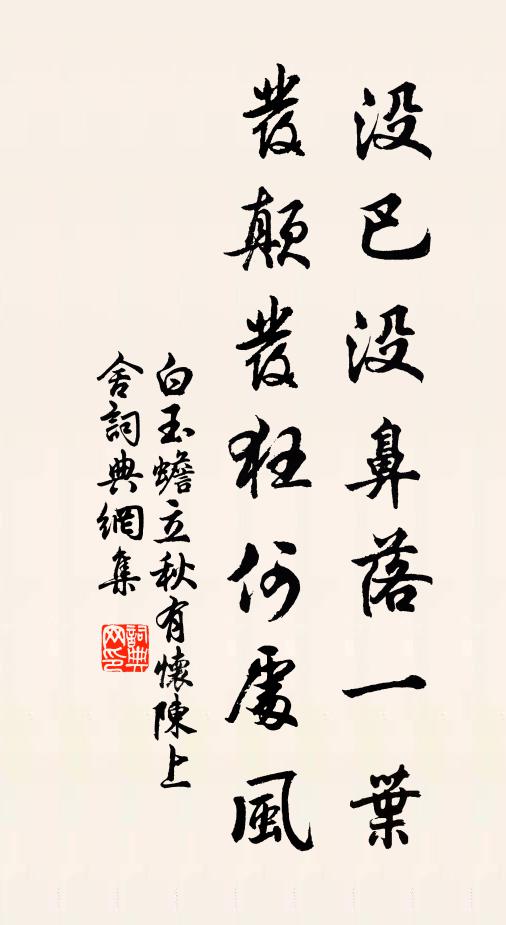 没巴没鼻落一葉
發顛發狂何處風
白玉蟾立秋有懷陳上
舍詞典網集
詞典網印